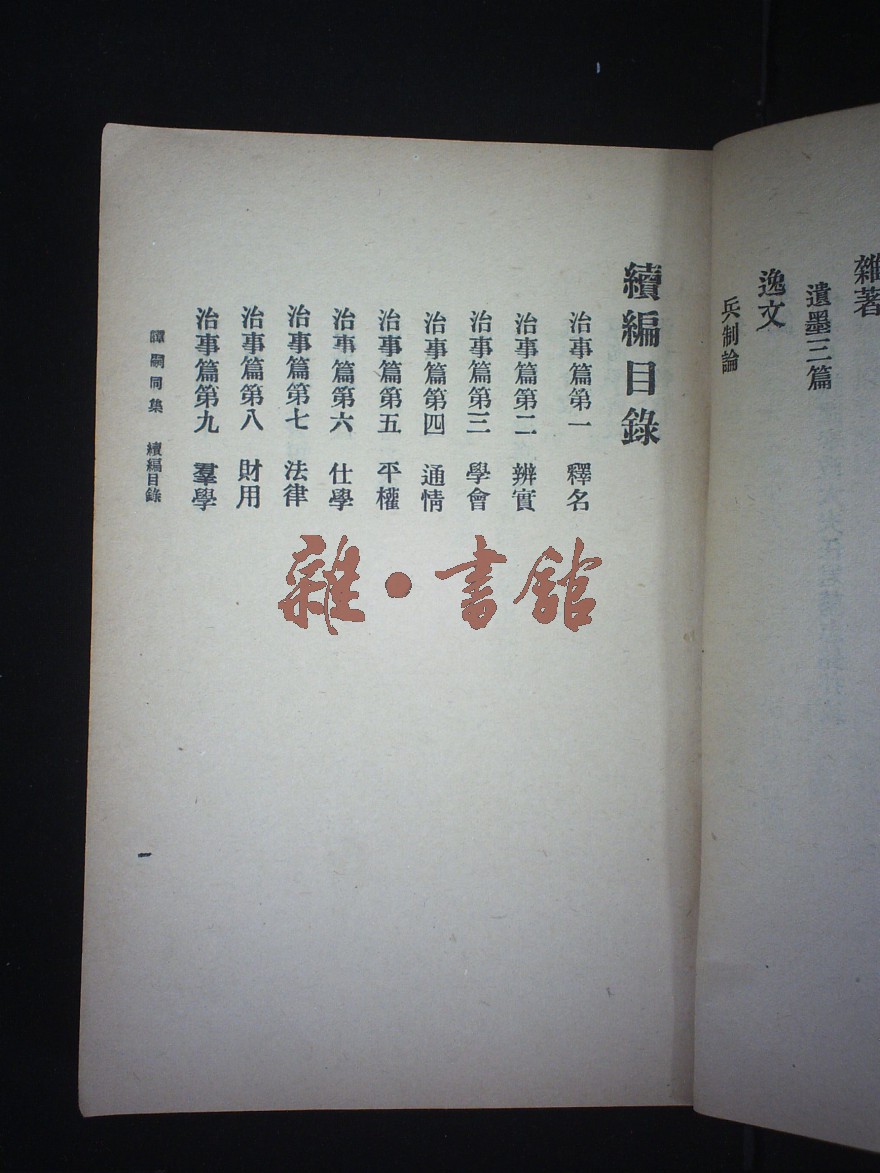 雜著
遺墨三篇
逸文
兵制論
續編目錄
治事篇第一 釋名
治事篇第二 辨實
治事篇第三 學會
治事篇第四 通情
治事篇第五 平權
治事篇第六 仕學
治事篇第七 法律
治事篇第八 財用
治事篇第九 羣學
譚嗣同集 續編目錄
一
雜·書館